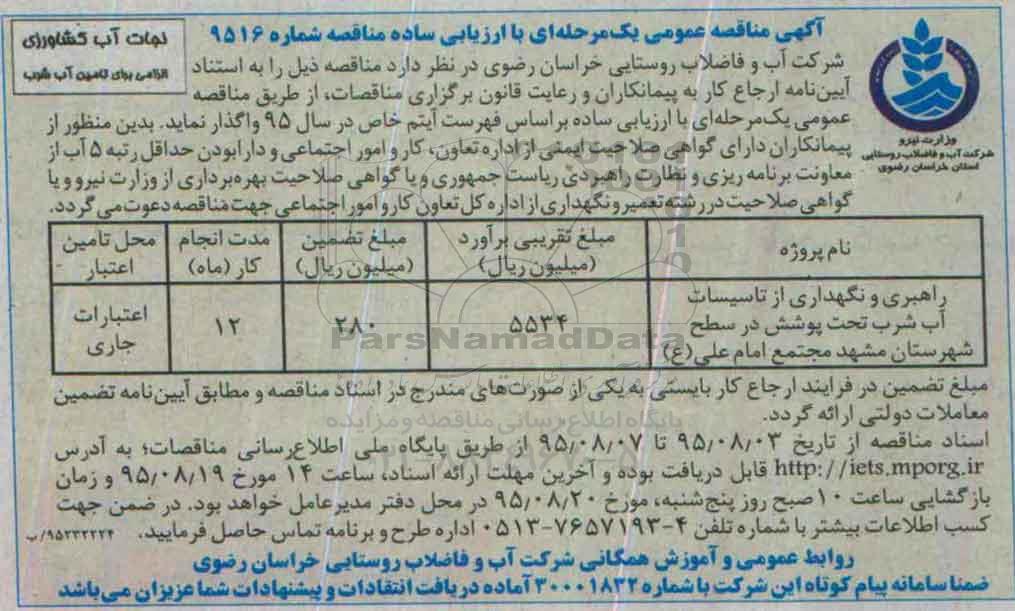 آگهی مناقصه عمومی یک‌مرحله‌ای با ارزیابی ساده مناقصه شماره ۹۵۱۶
نجات آب کشاورزی
الزامی برای تامین آب شرب
وزارت نیرو
شرکت آب و فاضلاب روستایی
استان خراسان رضوی
شرکت آب و فاضلاب روستایی خراسان رضوی در نظر دارد مناقصه ذیل را به استناد
آیین‌نامه ارجاع کار به پیمانکاران و رعایت قانون برگزاری مناقصات، از طریق مناقصه
عمومی یک‌مرحله‌ای با ارزیابی ساده براساس فهرست آیتم خاص در سال ۹۵ واگذار نماید. بدین منظور از
پیمانکاران دارای گواهی صلاحیت ایمنی از اداره تعاون، کار و امور اجتماعی و دارا بودن حداقل رتبه ۵ آب از
معاونت برنامه ریزی و نظارت راهبردی ریاست جمهوری و یا گواهی صلاحیت بهره‌برداری از وزارت نیرو و یا
گواهی صلاحیت در رشته تعمیر و نگهداری از اداره کل تعاون کار و امور اجتماعی جهت مناقصه دعوت می‌گردد.
نام پروژه
مبلغ تقریبی برآورد (میلیون ریال)
مبلغ تضمین (میلیون ریال)
مدت انجام کار (ماه)
محل تامین اعتبار
راهبری و نگهداری از تاسیسات
آب شرب تحت پوشش در سطح
شهرستان مشهد مجتمع امام علی(ع)
۵۵۳۴
۲۸۰
۱۲
اعتبارات جاری
ParsNamadData
پایگاه اطلاع رسانی مناقصه و مزایده
مبلغ تضمین در فرایند ارجاع کار بایستی به یکی از صورت‌های مندرج در اسناد مناقصه و مطابق آیین‌نامه تضمین
معاملات دولتی ارائه گردد.
اسناد مناقصه از تاریخ ۹۵/۰۸/۰۳ تا ۹۵/۰۸/۰۷ از طریق پایگاه ملی اطلاع‌رسانی مناقصات؛ به آدرس
http://iets.mporg.ir قابل دریافت بوده و آخرین مهلت ارائه اسناد، ساعت ۱۴ مورخ ۹۵/۰۸/۱۹ و زمان
بازگشایی ساعت ۱۰ صبح روز پنج‌شنبه، مورخ ۹۵/۰۸/۲۰ در محل دفتر مدیرعامل خواهد بود. در ضمن جهت
کسب اطلاعات بیشتر با شماره تلفن ۴-۷۶۵۷۱۹۳-۰۵۱۳ اداره طرح و برنامه تماس حاصل فرمایید.
۹۵۲۳۲۲۲۴/ب
روابط عمومی و آموزش همگانی شرکت آب و فاضلاب روستایی خراسان رضوی
ضمنا سامانه پیام کوتاه این شرکت با شماره ۳۰۰۰۱۸۳۲ آماده دریافت انتقادات و پیشنهادات شما عزیزان می‌باشد